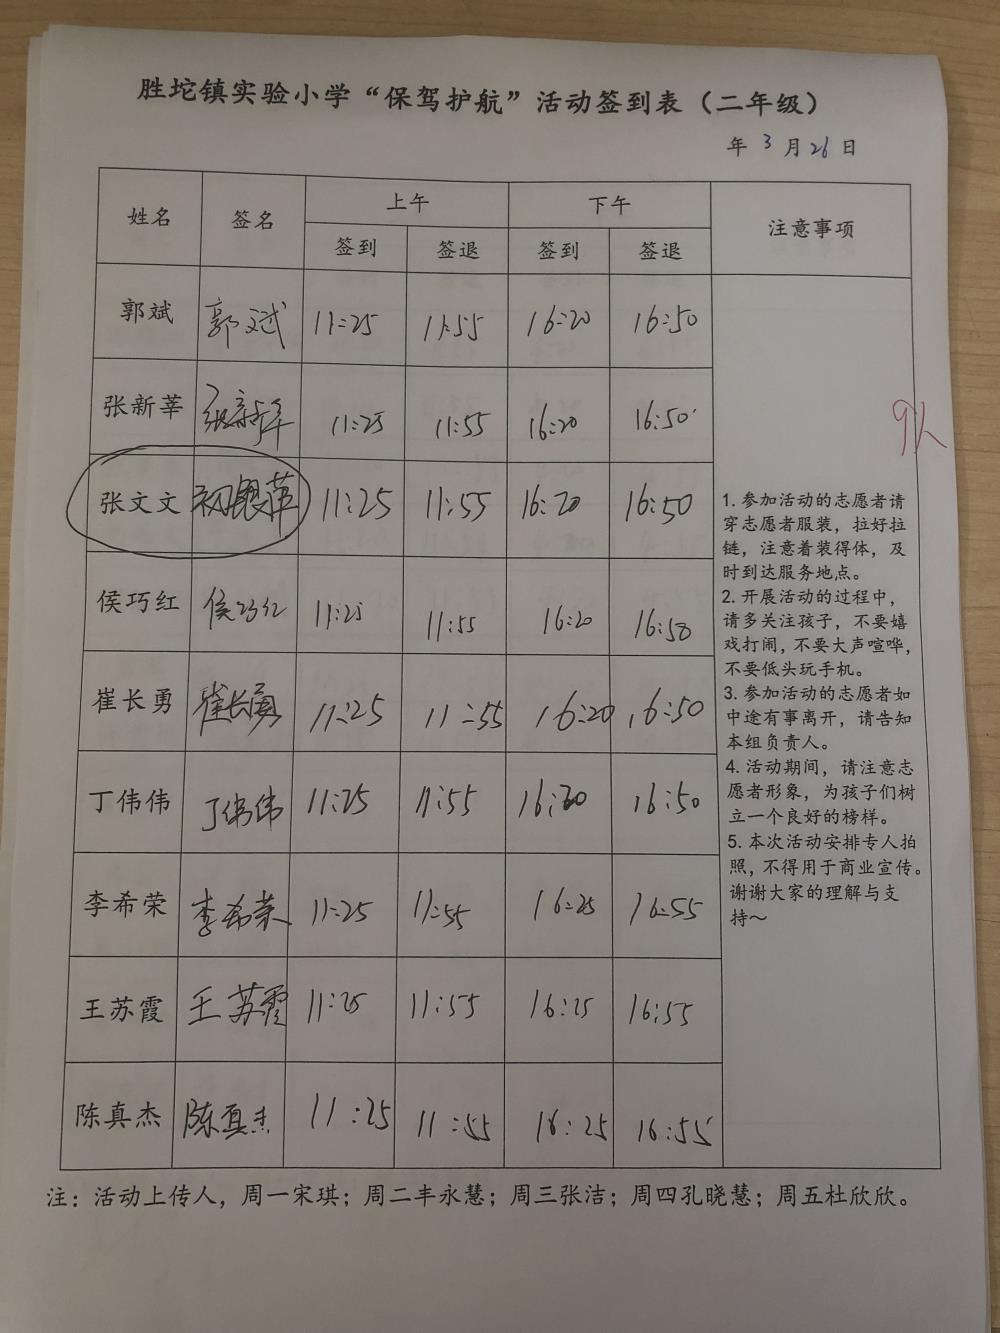 胜坨镇实验小学“保驾护航”活动签到表（二年级）
年 3 月 26 日
姓名 签名 上午 下午 注意事项
签到 签退 签到 签退
郭斌 郭斌 11:25 11:55 16:20 16:50
张新莘 张新莘 11:25 11:55 16:20 16:50
9人
张文文 11:25 11:55 16:20 16:50
侯巧红 侯巧红 11:25 11:55 16:20 16:50
崔长勇 崔长勇 11:25 11:55 16:20 16:50
丁伟伟 丁伟伟 11:25 11:55 16:20 16:50
李希荣 李希荣 11:25 11:55 16:25 16:55
王苏霞 王苏霞 11:25 11:55 16:25 16:55
陈真杰 陈真杰 11:25 11:55 16:25 16:55
1. 参加活动的志愿者请
穿志愿者服装，拉好拉
链，注意着装得体，及
时到达服务地点。
2. 开展活动的过程中，
请多关注孩子，不要嬉
戏打闹，不要大声喧哗，
不要低头玩手机。
3. 参加活动的志愿者如
中途有事离开，请告知
本组负责人。
4. 活动期间，请注意志
愿者形象，为孩子们树
立一个良好的榜样。
5. 本次活动安排专人拍
照，不得用于商业宣传。
谢谢大家的理解与支
持～
注：活动上传人，周一宋琪；周二丰永慧；周三张洁；周四孔晓慧；周五杜欣欣。